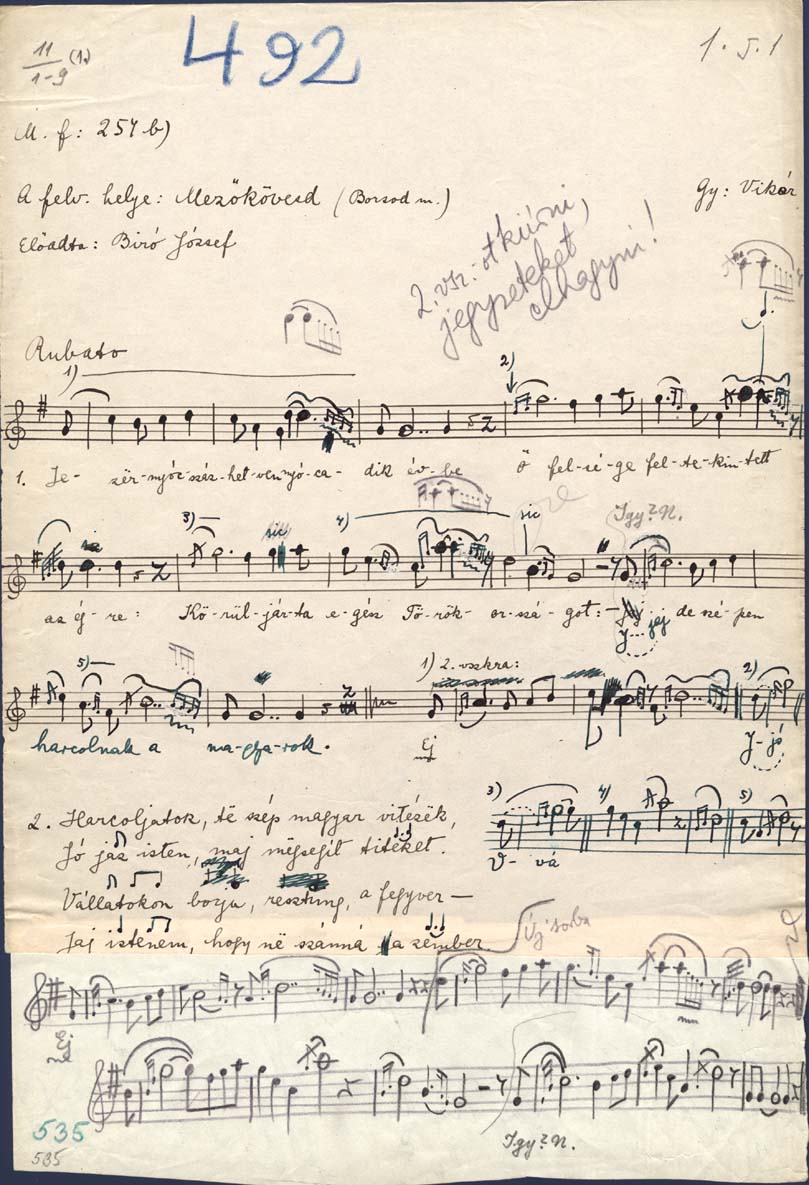 11
1-9 (1.)
492
1. 5. 1
M. f: 257 b)
A felv. helye: Mezőkövesd (Borsod m.)
Gy: Vikár
Előadta: Biró József
2. vsz.-ot kiírni,
jegyzeteket
elhagyni!
Rubato
1)
2)
1. Je- zër-nyóc-száz-het-ven-nyó-ca-dik év-be ő fel-sé-ge fel-te-kin-tett
3) sic 4) sic Igy? N.
az ég-re: Kö-rül-jár-ta e-gész Tö-rök-or-szá-got: jaj de szé-pen
J---
5) 1) 2. vszkra: 2)
harcolnak a ma-gya-rok. Ej J-jó
3) 4) 5)
V-vá
2. Harcoljatok, të szép magyar vitézëk,
Jó jaz isten, maj mëgsegit titëket.
Vállatokon borju, resztung, a fegyver—
Jaj istenem, hogy në szánná ja zember
Új sorba
Ej
në
535
535
Igy? N.